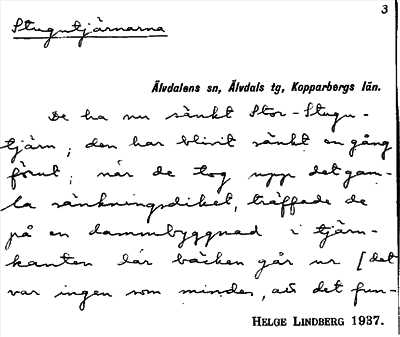 3
Stugutjärnarna
Älvdalens sn, Älvdals tg, Kopparbergs län.
De ha nu sänkt Stor-Stugu-
tjärn; den har blivit sänkt en gång
förut; när de tog upp det gam-
la sänkningsdiket, träffade de
på en dammbyggnad i tjärn-
kanten där bäcken går ur [det
var ingen som mindes, att det fun-
HELGE LINDBERG 1937.